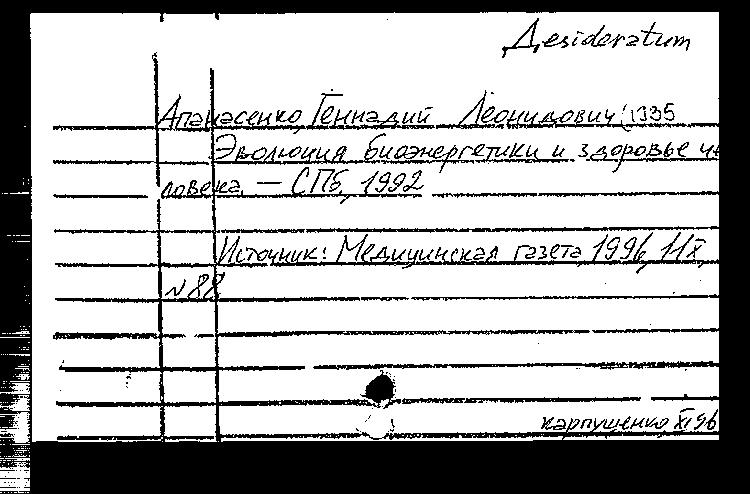 Desideratum
Апанасенко, Геннадий Леонидович (1935
Эволюция биоэнергетики и здоровье че
ловека. — СПб, 1992
Источник: Медицинская газета, 1996, 11 X,
N 88
Карпушенко, XI 96